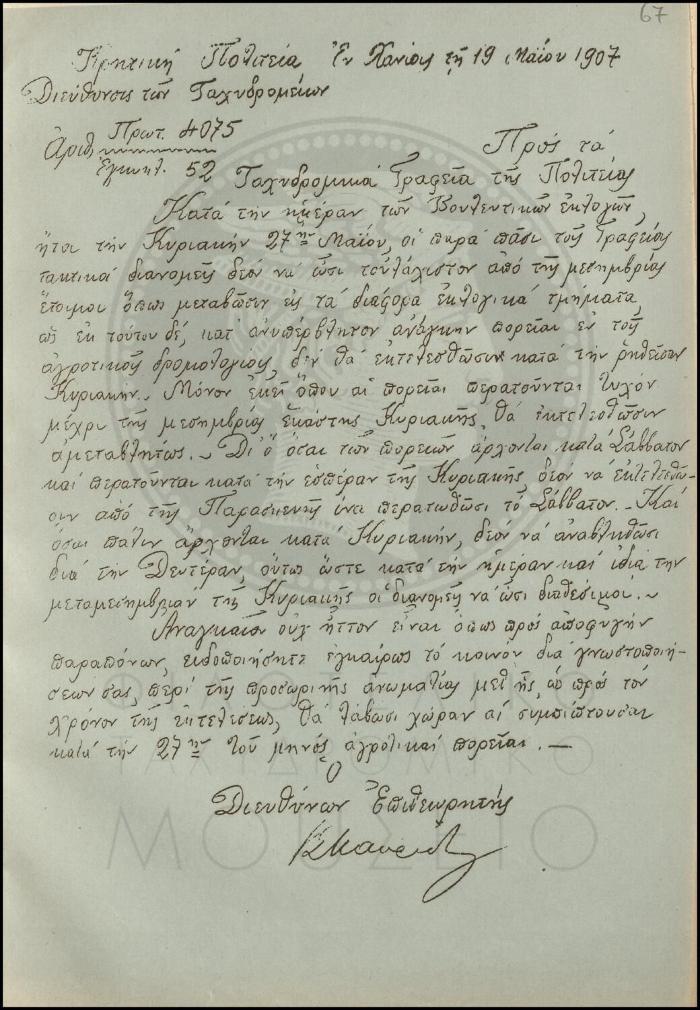 67
Κρητική Πολιτεία Ἐν Χανίοις τῇ 19 Μαΐου 1907
Διεύθυνσις τῶν Ταχυδρομείων
Ἀριθ. Πρωτ. 4075
Ἐγκυκλ. 52
Πρός τά
Ταχυδρομικά Γραφεῖα τῆς Πολιτείας
Κατά τήν ἡμέραν τῶν Βουλευτικῶν ἐκλογῶν,
ἤτοι τήν Κυριακήν 27ην Μαΐου, οἱ παρά πᾶσι τοῖς Γραφείοις
τακτικοί διανομεῖς δέον νά ὦσι τοὐλάχιστον ἀπό τῆς μεσημβρίας
ἕτοιμοι ὅπως μεταβῶσιν εἰς τά διάφορα ἐκλογικά τμήματα,
ὡς ἐκ τούτου δέ, κατ' ἀνυπέρβλητον ἀνάγκην πορεῖαι ἐν τοῖς
ἀγροτικοῖς δρομολογίοις, δέν θά ἐκτελεσθῶσιν κατά τήν ῥηθεῖσαν
Κυριακήν. Μόνον ἐκεῖ ὅπου αἱ πορεῖαι περατοῦνται τυχόν
μέχρι τῆς μεσημβρίας ἑκάστης Κυριακῆς, θά ἐκτελεσθῶσιν
ἀμεταβλήτως. Δι' ὅ ὅσαι τῶν πορειῶν ἄρχονται κατά Σάββατον
καί περατοῦνται κατά τήν ἑσπέραν τῆς Κυριακῆς, δέον νά ἐκτελεθῶ-
σιν ἀπό τῆς Παρασκευῆς ἵνα περατωθῶσι τό Σάββατον. Καί
ὅσαι πάλιν ἄρχονται κατά Κυριακήν, δέον νά ἀναβληθῶσι
διά τήν Δευτέραν, οὕτως ὥστε κατά τήν ἡμέραν καί ἰδίᾳ τήν
μεταμεσημβρίαν τῆς Κυριακῆς οἱ διανομεῖς νά ὦσι διαθέσιμοι.
Ἀναγκαῖον οὐχ ἧττον εἶναι ὅπως πρός ἀποφυγήν
παραπόνων, εἰδοποιήσητε ἐγκαίρως τό κοινόν διά γνωστοποιή-
σεών σας, περί τῆς προσωρινῆς ἀνωμαλίας μεθ' ἧς, ὡς πρός τόν
χρόνον τῆς ἐκτελέσεως, θά λάβωσι χώραν αἱ συμπίπτουσαι
κατά τήν 27ην τοῦ μηνός ἀγροτικαί πορεῖαι.
Ὁ
Διευθύνων Ἐπιθεωρητής
ΤΑΧΥΔΡΟΜΙΚΟ
ΜΟΥΣΕΙΟ